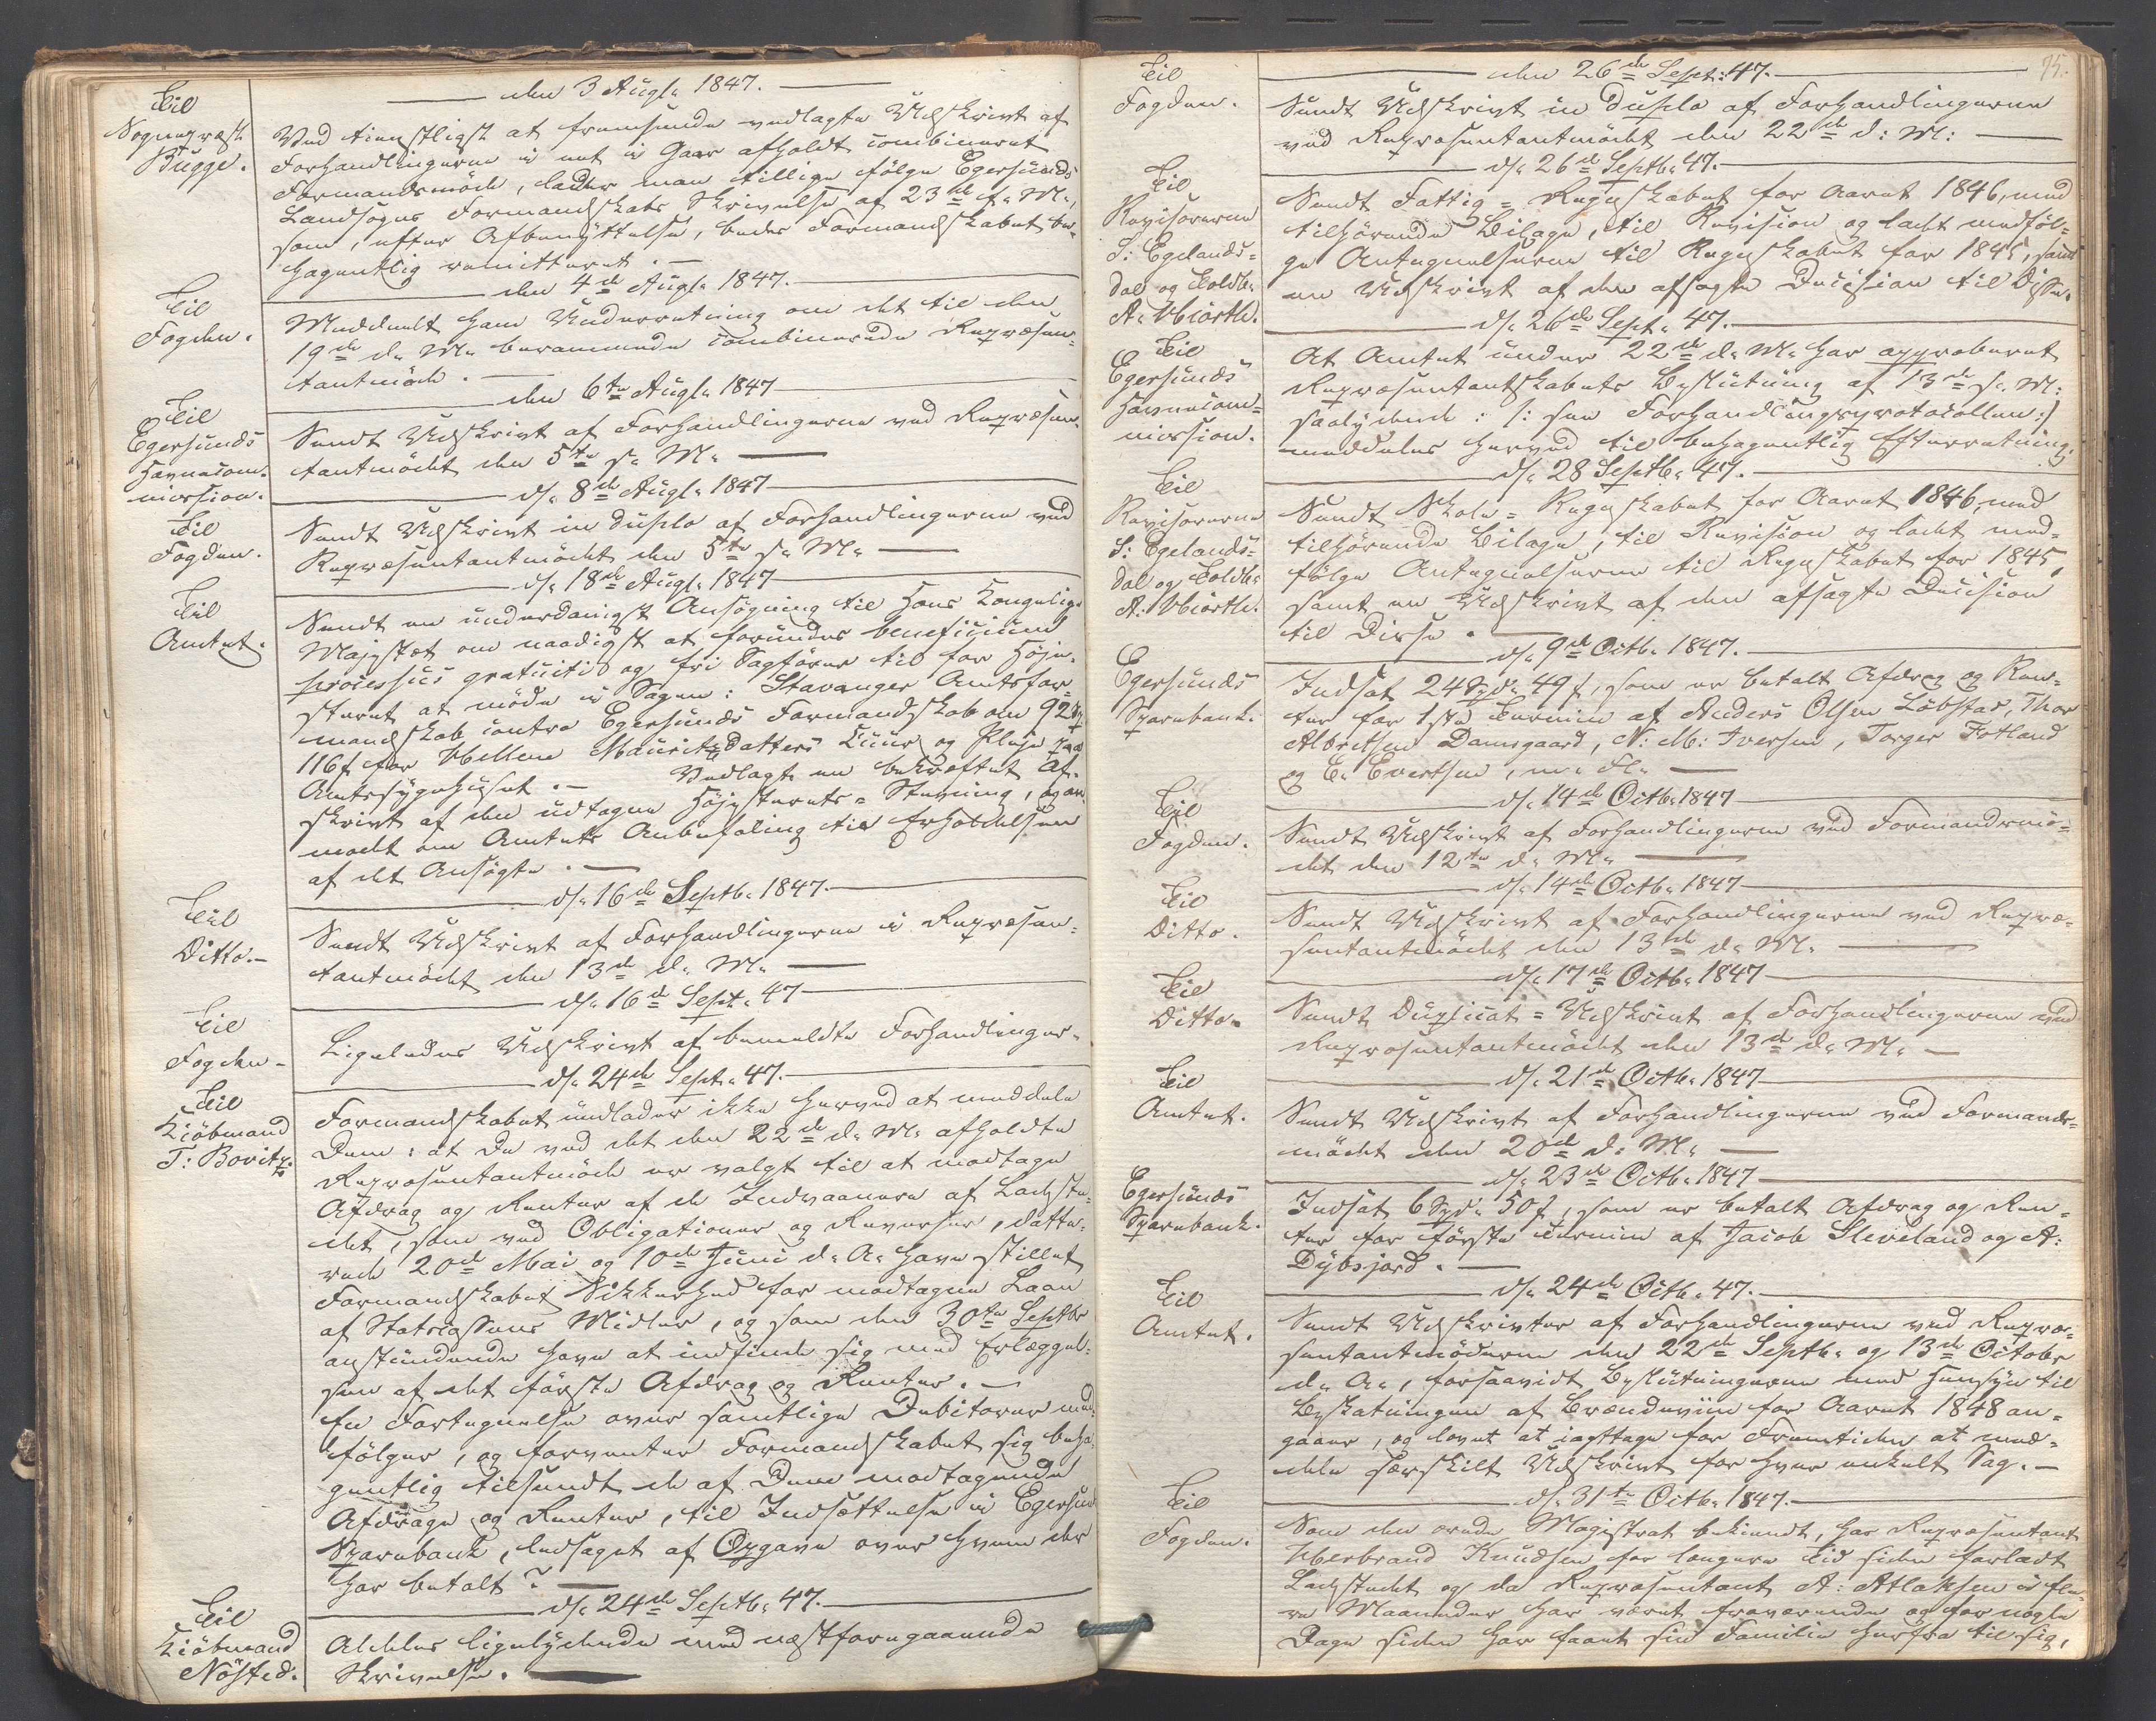 den 3 Augt. 1847.
Til
Sognepræst
Bugge.
Ved tienstligst at fremsende vedlagte Udskrivt af
Forhandlingerne i et i Gaar afholdt combineret
Formandsmöde, lader man tillige fölge Egersunds
Landsogns Formandskabs Skrivelse af 23de f. M.,
som, efter Afbenyttelse, bedes Formandskabet be-
hagentlig remitteret. —
den 4de Augt. 1847.
Til
Fogden.
Meddeelt ham Underretning om det til den
19de d. M. berammede combinerede Repræsen-
tantmöde. —
den 6te Augt. 1847
Til
Egersunds
Havnecom-
mission.
Sendt Udskrivt af Forhandlingerne ved Repræsen-
tantmödet den 5te d. M. —
d. 8de Augt. 1847
Til
Fogden.
Sendt Udskrivt in duplo af Forhandlingerne ved
Repræsentantmödet den 5te d. M. —
d. 18de Augt. 1847
Til
Amtet.
Sendt en underdanigst Ansögning til Hans Kongelige
Majestæt om naadigst at forundes beneficium
processus gratuiti og fri Sagförer til for Höje-
steret at möde i Sagen: Stavanger Amtsfor-
mandskab contra Egersunds Formandskab om 92
116 f for Hellene Mauritzdatters Cuur og Pleje paa
Amtssygehuset. — Vedlagt en bekræftet Af-
skrivt af den udtagne Höjesterets-Stevning, og an-
modt om Amtets Anbefaling til Erholdelsen
af det Ansögte. —
d. 16de Septb. 1847.
Til
Ditto. —
Sendt Udskrivt af Forhandlingerne i Repræsen-
tantmödet den 13de d. M. —
d. 16de Sept. 47
Til
Fogden —
Ligeledes Udskrivt af bemeldte Forhandlinger. —
d. 24de Sept. 47.
Til
Kiöbmand
T: Bovitz.
Formandskabet undlader ikke herved at meddele
Dem: at De ved det den 22de d. M. afholdte
Repræsentantmöde er valgt til at modtage
Afdrag og Renter af de Indvaanere af Ladste-
det, som ved Obligationer og Reverser, datte-
rede 20de Mai og 10de Juni d. A. have stillet
Formandskabet Sikkerhed for modtagne Laan
af Statscassens Midler, og som den 30te Septbr
anstundende have at indfinde sig med Erlæggel-
sen af det förste Afdrag og Renter. —
En Fortegnelse over samtlige Debitorer med-
fölger, og forventer Formandskabet sig beha-
gentlig tilsendt de af Dem modtagende
Afdrage og Renter, til Indsættelse i Egersunds
Sparebank, ledsaget af Opgave over hvem der
har betalt. —
d. 24de Septb. 47.
Til
Kiöbmand
Nösted.
Aldeles ligelydende med næstforegaaende
Skrivelse. —
75.
den 26de Sept: 47.
Til
Fogden.
Sendt Udskrivt in duplo af Forhandlingerne
ved Repræsentantmödet den 22de d: M: —
d. 26de Septb. 47.
Til
Revisorerne
S: Egelands-
dal og Toldb.
A. Miörth.
Sendt Fattig-Regnskabet for Aaret 1846, med
tilhörende Bilage, til Revision og ladt medföl-
ge Antegnelserne til Regnskabet for 1845, samt
en Udskrivt af den afsagte Decision til Disse.
d. 26de Sept. 47.
Til
Egersunds
Havnecom-
mission.
At Amtet under 22de d. M. har approberet
Repræsentantskabets Beslutning af 13de s. M:
saalydende: /: see Forhandlingsprotocollen :/
meddeles herved til behagentlig Efterretning.
d. 28 Septb. 47.
Til
Revisorerne
S: Egelands-
dal og Toldb.
A. Miörth.
Sendt Skole-Regnskabet for Aaret 1846, med
tilhörende Bilage, til Revision og ladt med-
fölge Antegnelserne til Regnskabet for 1845,
samt en Udskrivt af den afsagte Decision
til Disse. —
d. 9de Octb. 1847.
Egersunds
Sparebank.
Indsat 24 Spd. 49 f, som er betalt Afdrag og Ren-
ter for 1ste Termin af Anders Olsen Löbstad, Thor
Albretsen Damsgaard, N: M: Iversen, Torger Fotland
og E. Evertsen, m. Fl. —
d. 14de Octb. 1847
Til
Fogden.
Sendt Udskrivt af Forhandlingerne ved Formandsmö-
det den 12te d. M. —
d. 14de Octb. 1847
Til
Ditto.
Sendt Udskrivt af Forhandlingerne ved Repræ-
sentantmödet den 13de d. M. —
d. 17de Octb. 1847
Til
Ditto.
Sendt Duplicat-Udskrivt af Forhandlingerne ved
Repræsentantmödet den 13de d. M. —
d. 21de Octb. 1847
Til
Amtet.
Sendt Udskrivt af Forhandlingerne ved Formands-
mödet den 20de d. M. —
d. 23de Octb. 1847
Egersunds
Sparebank.
Indsat 6 Spd. 50 f, som er betalt Afdrag og Ren-
ter for förste Termin af Jacob Sleveland og A:
Dybsjord. —
d. 24de Octb. 47.
Til
Amtet.
Sendt Udskrivter af Forhandlingerne ved Repræ-
sentantmöderne den 22de Septb. og 13de Octobr
d. A., forsaavidt Beslutningerne med Hensyn til
Beskatningen af Brændeviin for Aaret 1848 an-
gaaer, og lovet at iagttage for Fremtiden at med-
dele særskilt Udskrivt for hver enkelt Sag. —
d. 31te Octb. 1847.
Til
Fogden.
Som den ærede Magistrat bekiendt, har Repræsentant
Herbrand Knudsen for længere Tid siden forladt
Ladstedet og da Repræsentant A: Atlaksen i fle-
re Maaneder har været fraværende og for nogle
Dage siden har faaet sin Familie herfra til sig,